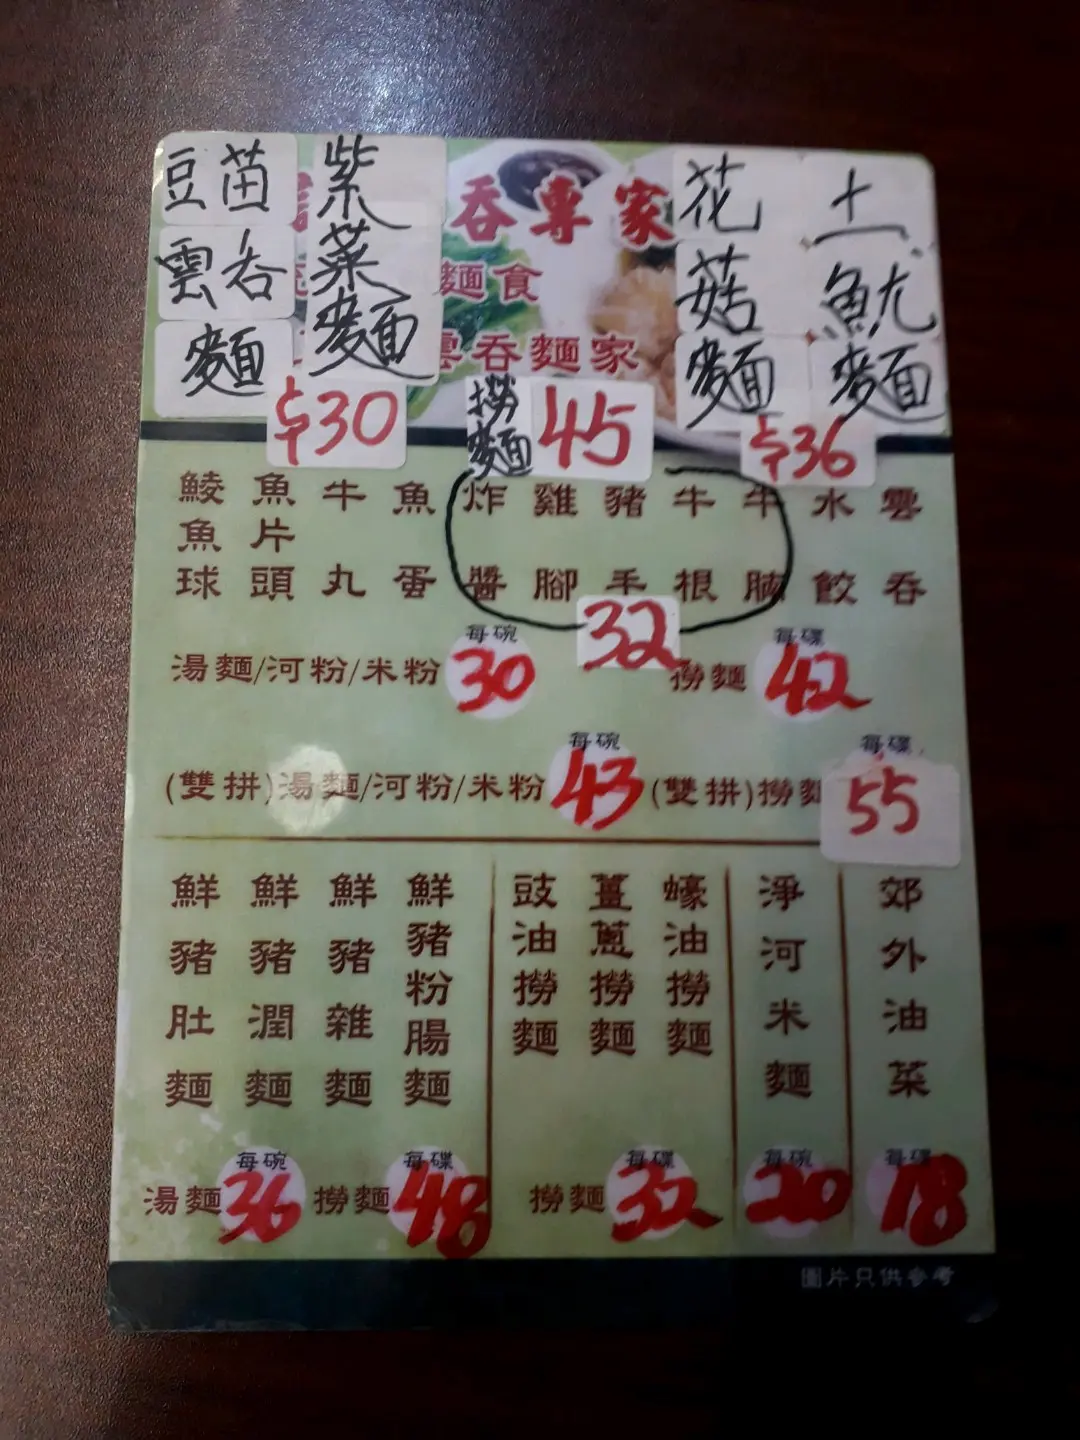 豆苗
雲吞
麵
紫
菜
麵
$30
吞專家
麵食
雲吞麵家
撈麵
45
花
菇
麵
土
魷
麵
$36
鯪魚球
魚片頭
牛丸
魚蛋
炸醬
雞腳
豬手
牛根
牛腩
水餃
雲吞
32
湯麵/河粉/米粉
每碗
30
撈麵
每碟
42
(雙拼)湯麵/河粉/米粉
每碗
43
(雙拼)撈麵
每碟
55
鮮豬肚麵
鮮豬潤麵
鮮豬雜麵
鮮豬粉腸麵
湯麵
每碗
36
撈麵
每碟
48
豉油撈麵
薑蔥撈麵
蠔油撈麵
撈麵
每碟
32
淨河米麵
每碗
20
郊外油菜
每碟
18
圖片只供參考